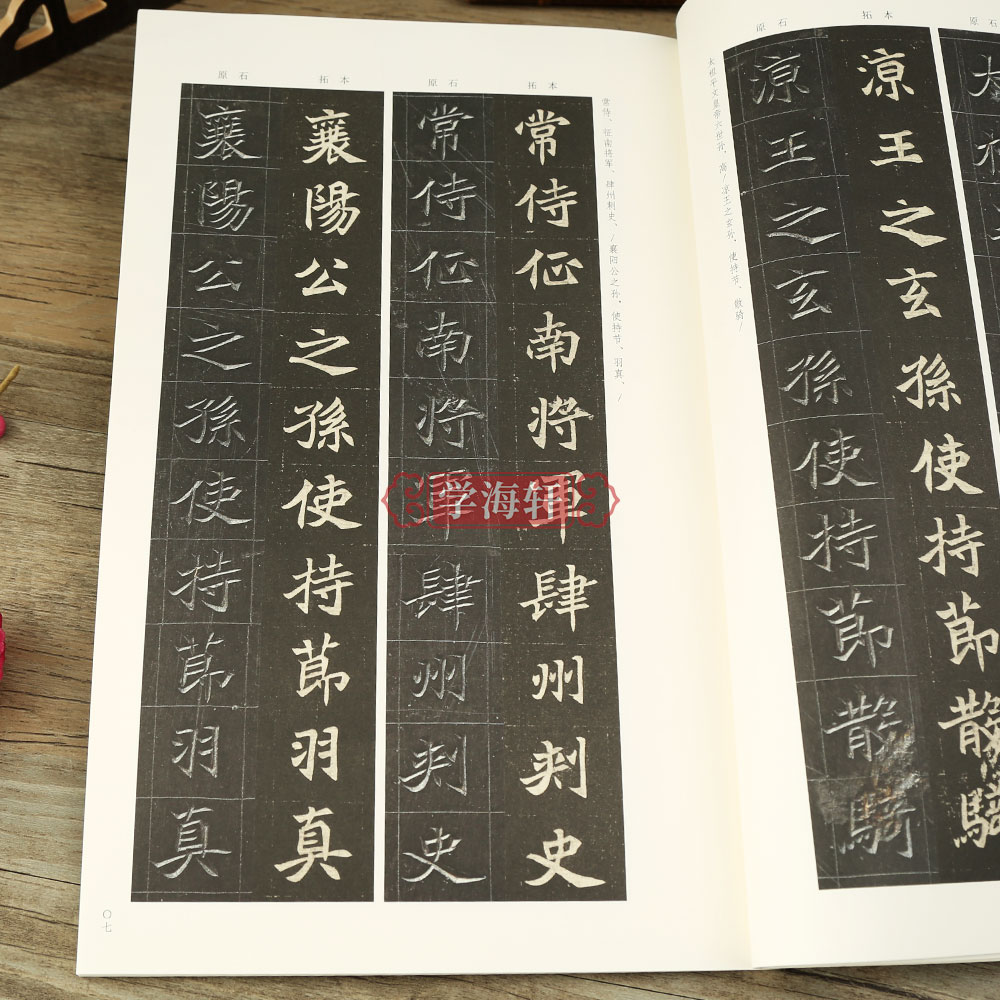 原石
拓本
涼王之玄孫使持莭散騎
原石
涼王之玄孫使持莭散騎
太祖平文皇帝六世孙、高/凉王之玄孙、使持节、散骑/
常侍、征南将军、肆州刺史、/襄阳公之孙、使持节、羽真、/
拓本
常侍征南將軍肆州刾史
原石
常侍征南將軍肆州刾史
拓本
襄陽公之孫使持莭羽真
原石
襄陽公之孫使持莭羽真
〇七
学海轩